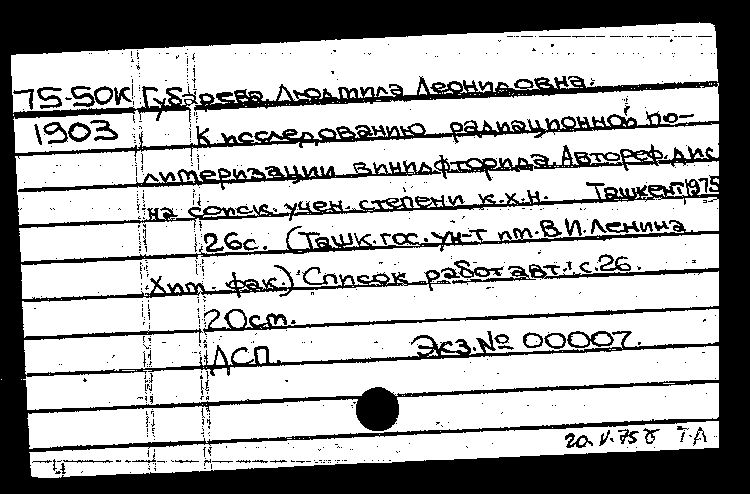 75-50К Губарева, Людмила Леонидовна.
1903 К исследованию радиационной по-
лимеризации винилфторида. Автореф. дис
на соиск. учен. степени к.х.н. Ташкент 1975
26с. (Ташк. гос. ун-т им. В.И. Ленина.
Хим. фак.) Список работ авт.: с. 26.
20см.
ДСП. Экз. № 00007.
20.V.75